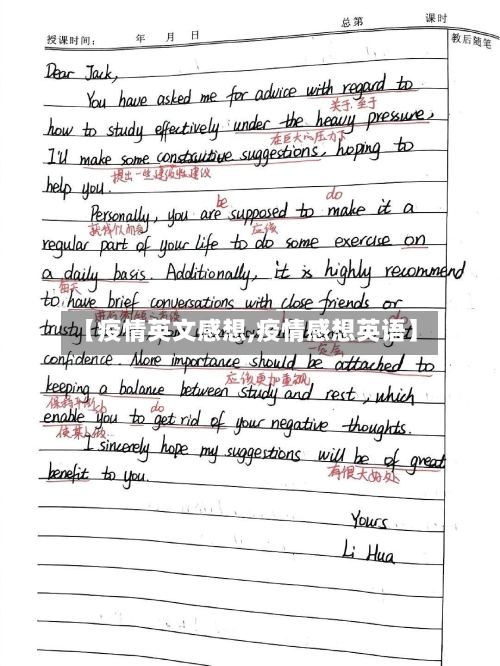 总第 课时
授课时间: 年 月 日 教后随笔
Dear Jack,
You have asked me for advice with regard to
关于.至于
how to study effectively under the heavy pressure,
在巨大的压力下
I'll make some constructive suggestions, hoping to
提出一些建设性建议
help you.
be do
Personally, you are supposed to make it a
应该
regular part of your life to do some exercise on
每天
a daily basis. Additionally, it is highly recommend
to have brief conversations with close friends or
trusty
【疫情英文感想,疫情感想英语】
confidence. More importance should be attached to
应该更加重视
keeping a balance between study and rest, which
sb do
enable you to get rid of your negative thoughts.
I sincerely hope my suggestions will be of great
有很大好处
benefit to you.
Yours
Li Hua